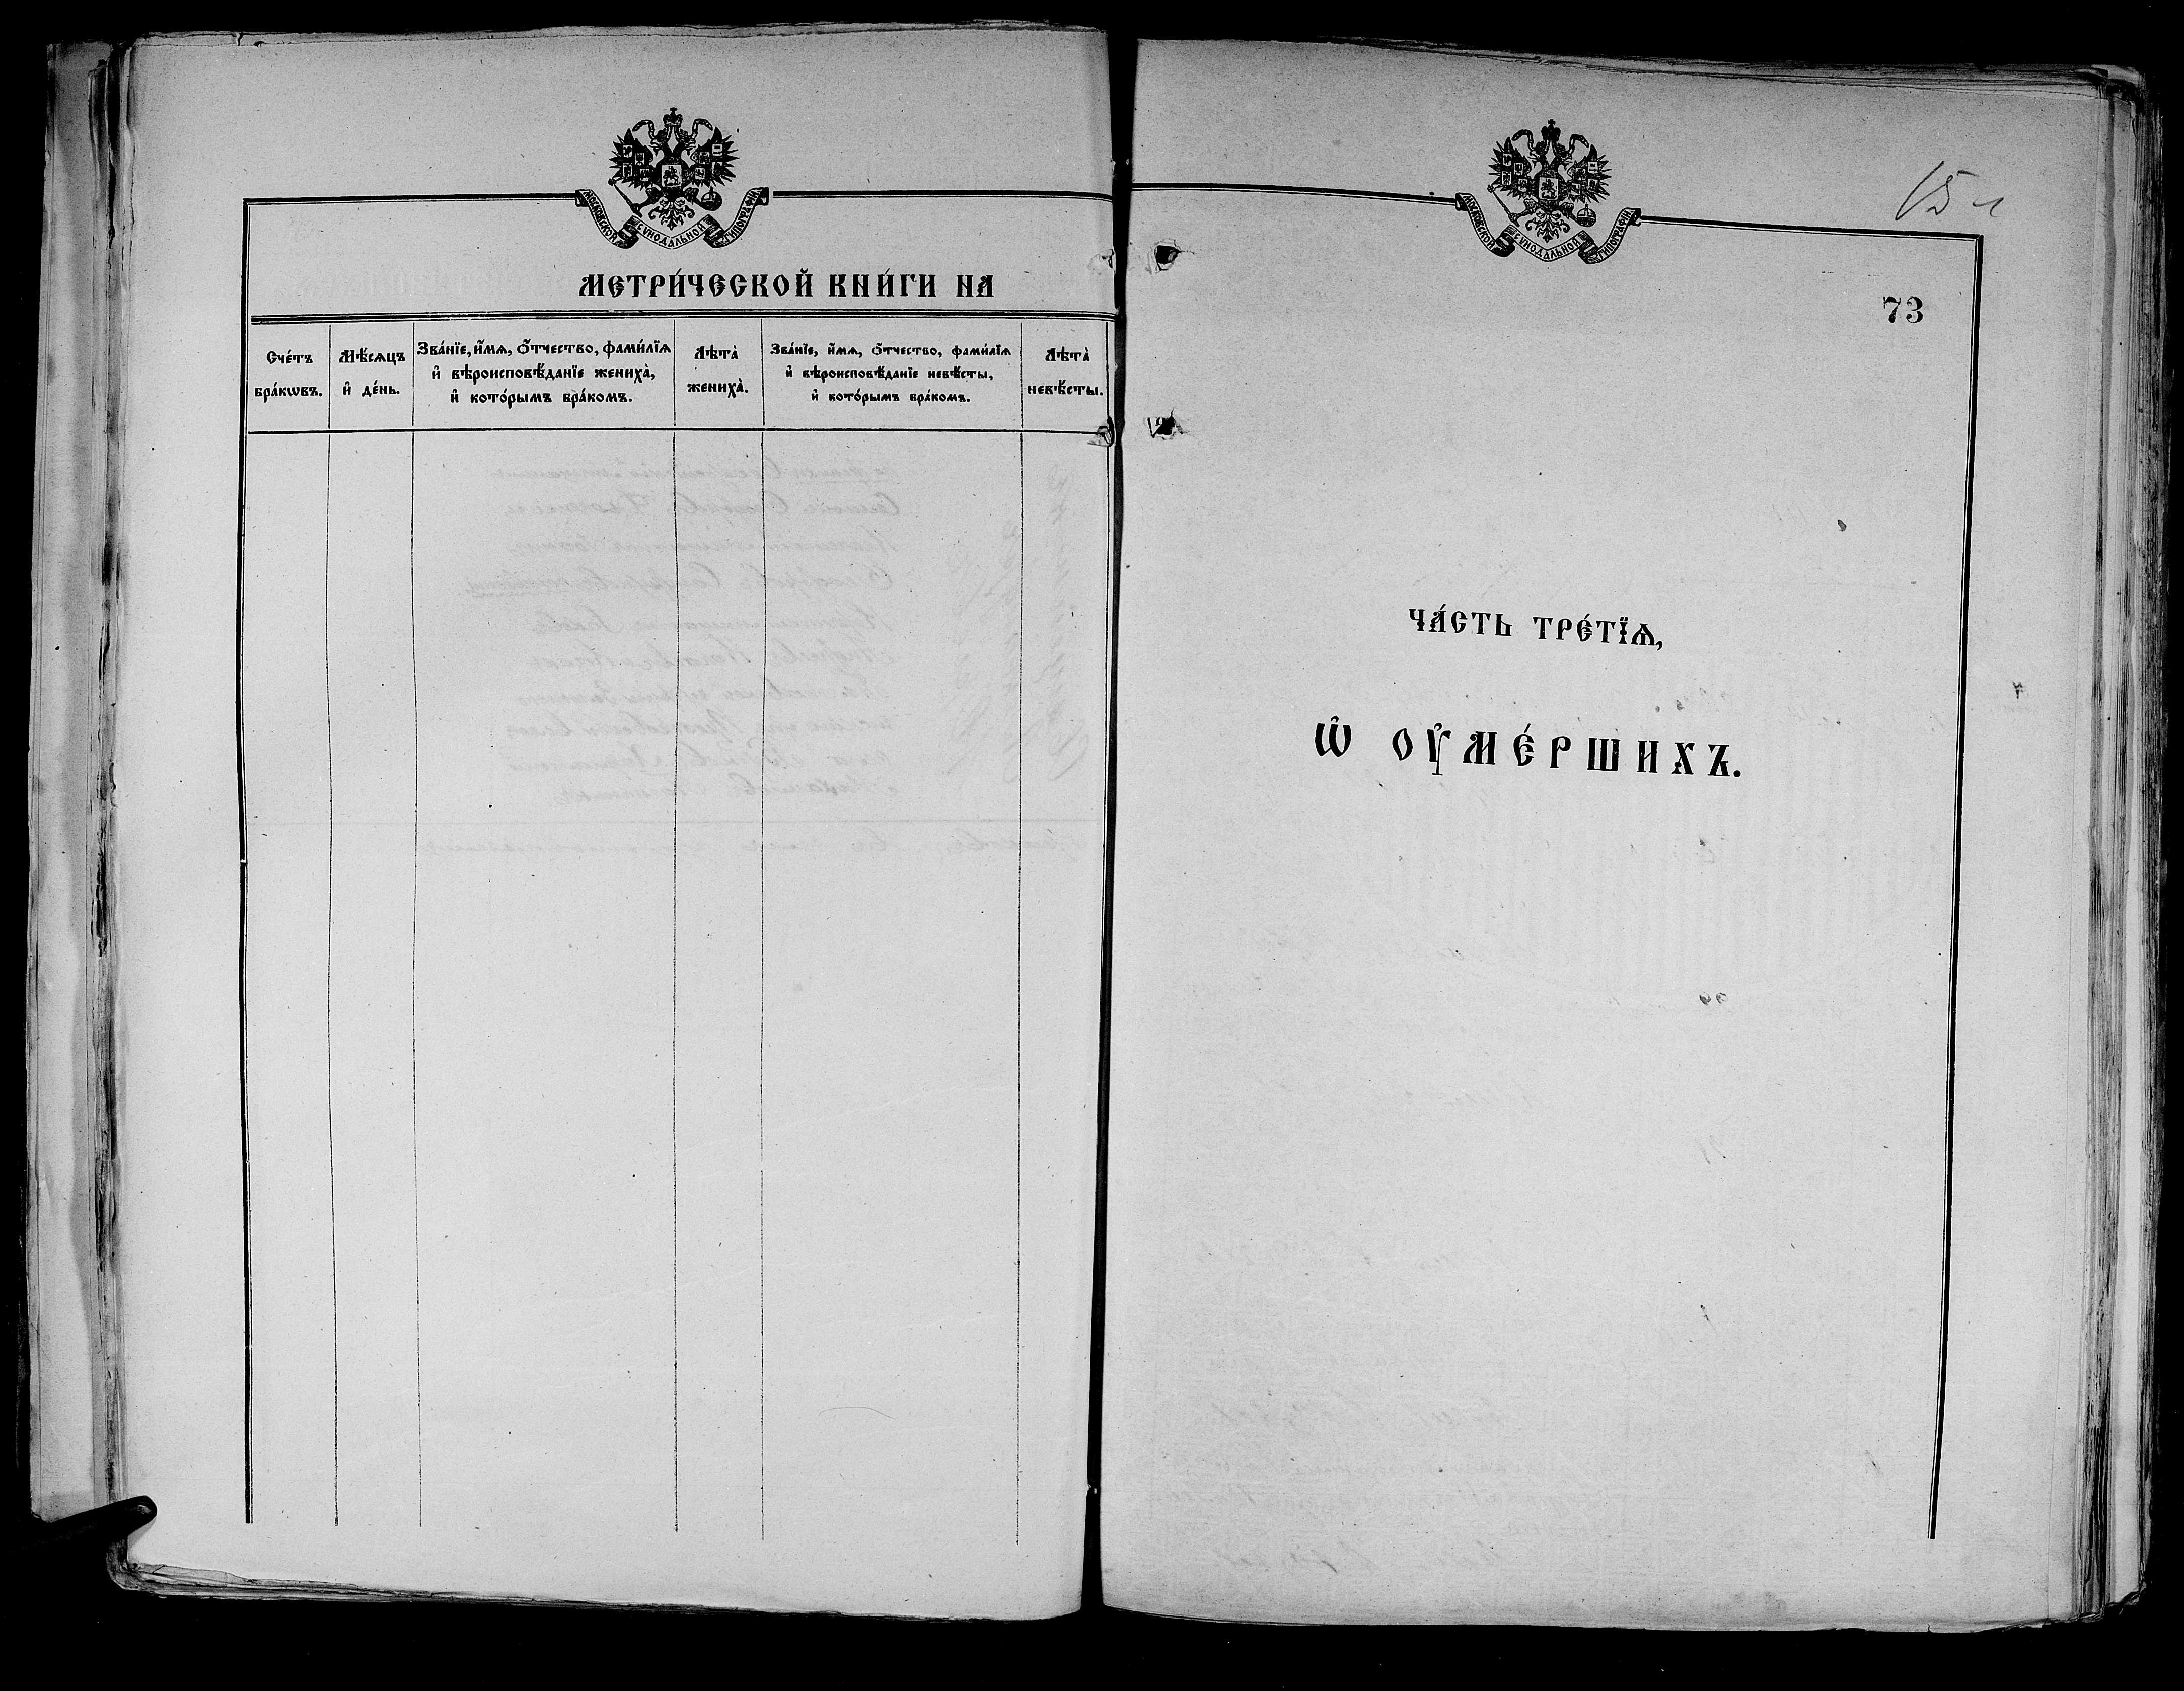 МОСКОВСКОЙ СѴНОДАЛЬНОЙ ТИПОГРАФІИ
МЕТРИ́ЧЕСКОЙ КНИ́ГИ НА
Сче́тъ
бра́кѡвъ.
Мѣ́сѧцъ
и҆ де́нь.
Зва́нїе, и҆́мѧ, ѻ҆́тчество, фами́лїѧ
и҆ вѣроисповѣ́данїе жениха̀,
и҆ кото́рымъ бра́комъ.
Лѣта̀
жениха̀.
Зва́нїе, и҆́мѧ, ѻ҆́тчество, фами́лїѧ
и҆ вѣроисповѣ́данїе невѣ́сты,
и҆ кото́рымъ бра́комъ.
Лѣта̀
невѣ́сты.
МОСКОВСКОЙ СѴНОДАЛЬНОЙ ТИПОГРАФІИ
73
ЧА́СТЬ ТРЕ́ТЇѦ,
Ѡ҆ ОУ҆МЕ́РШИХЪ.